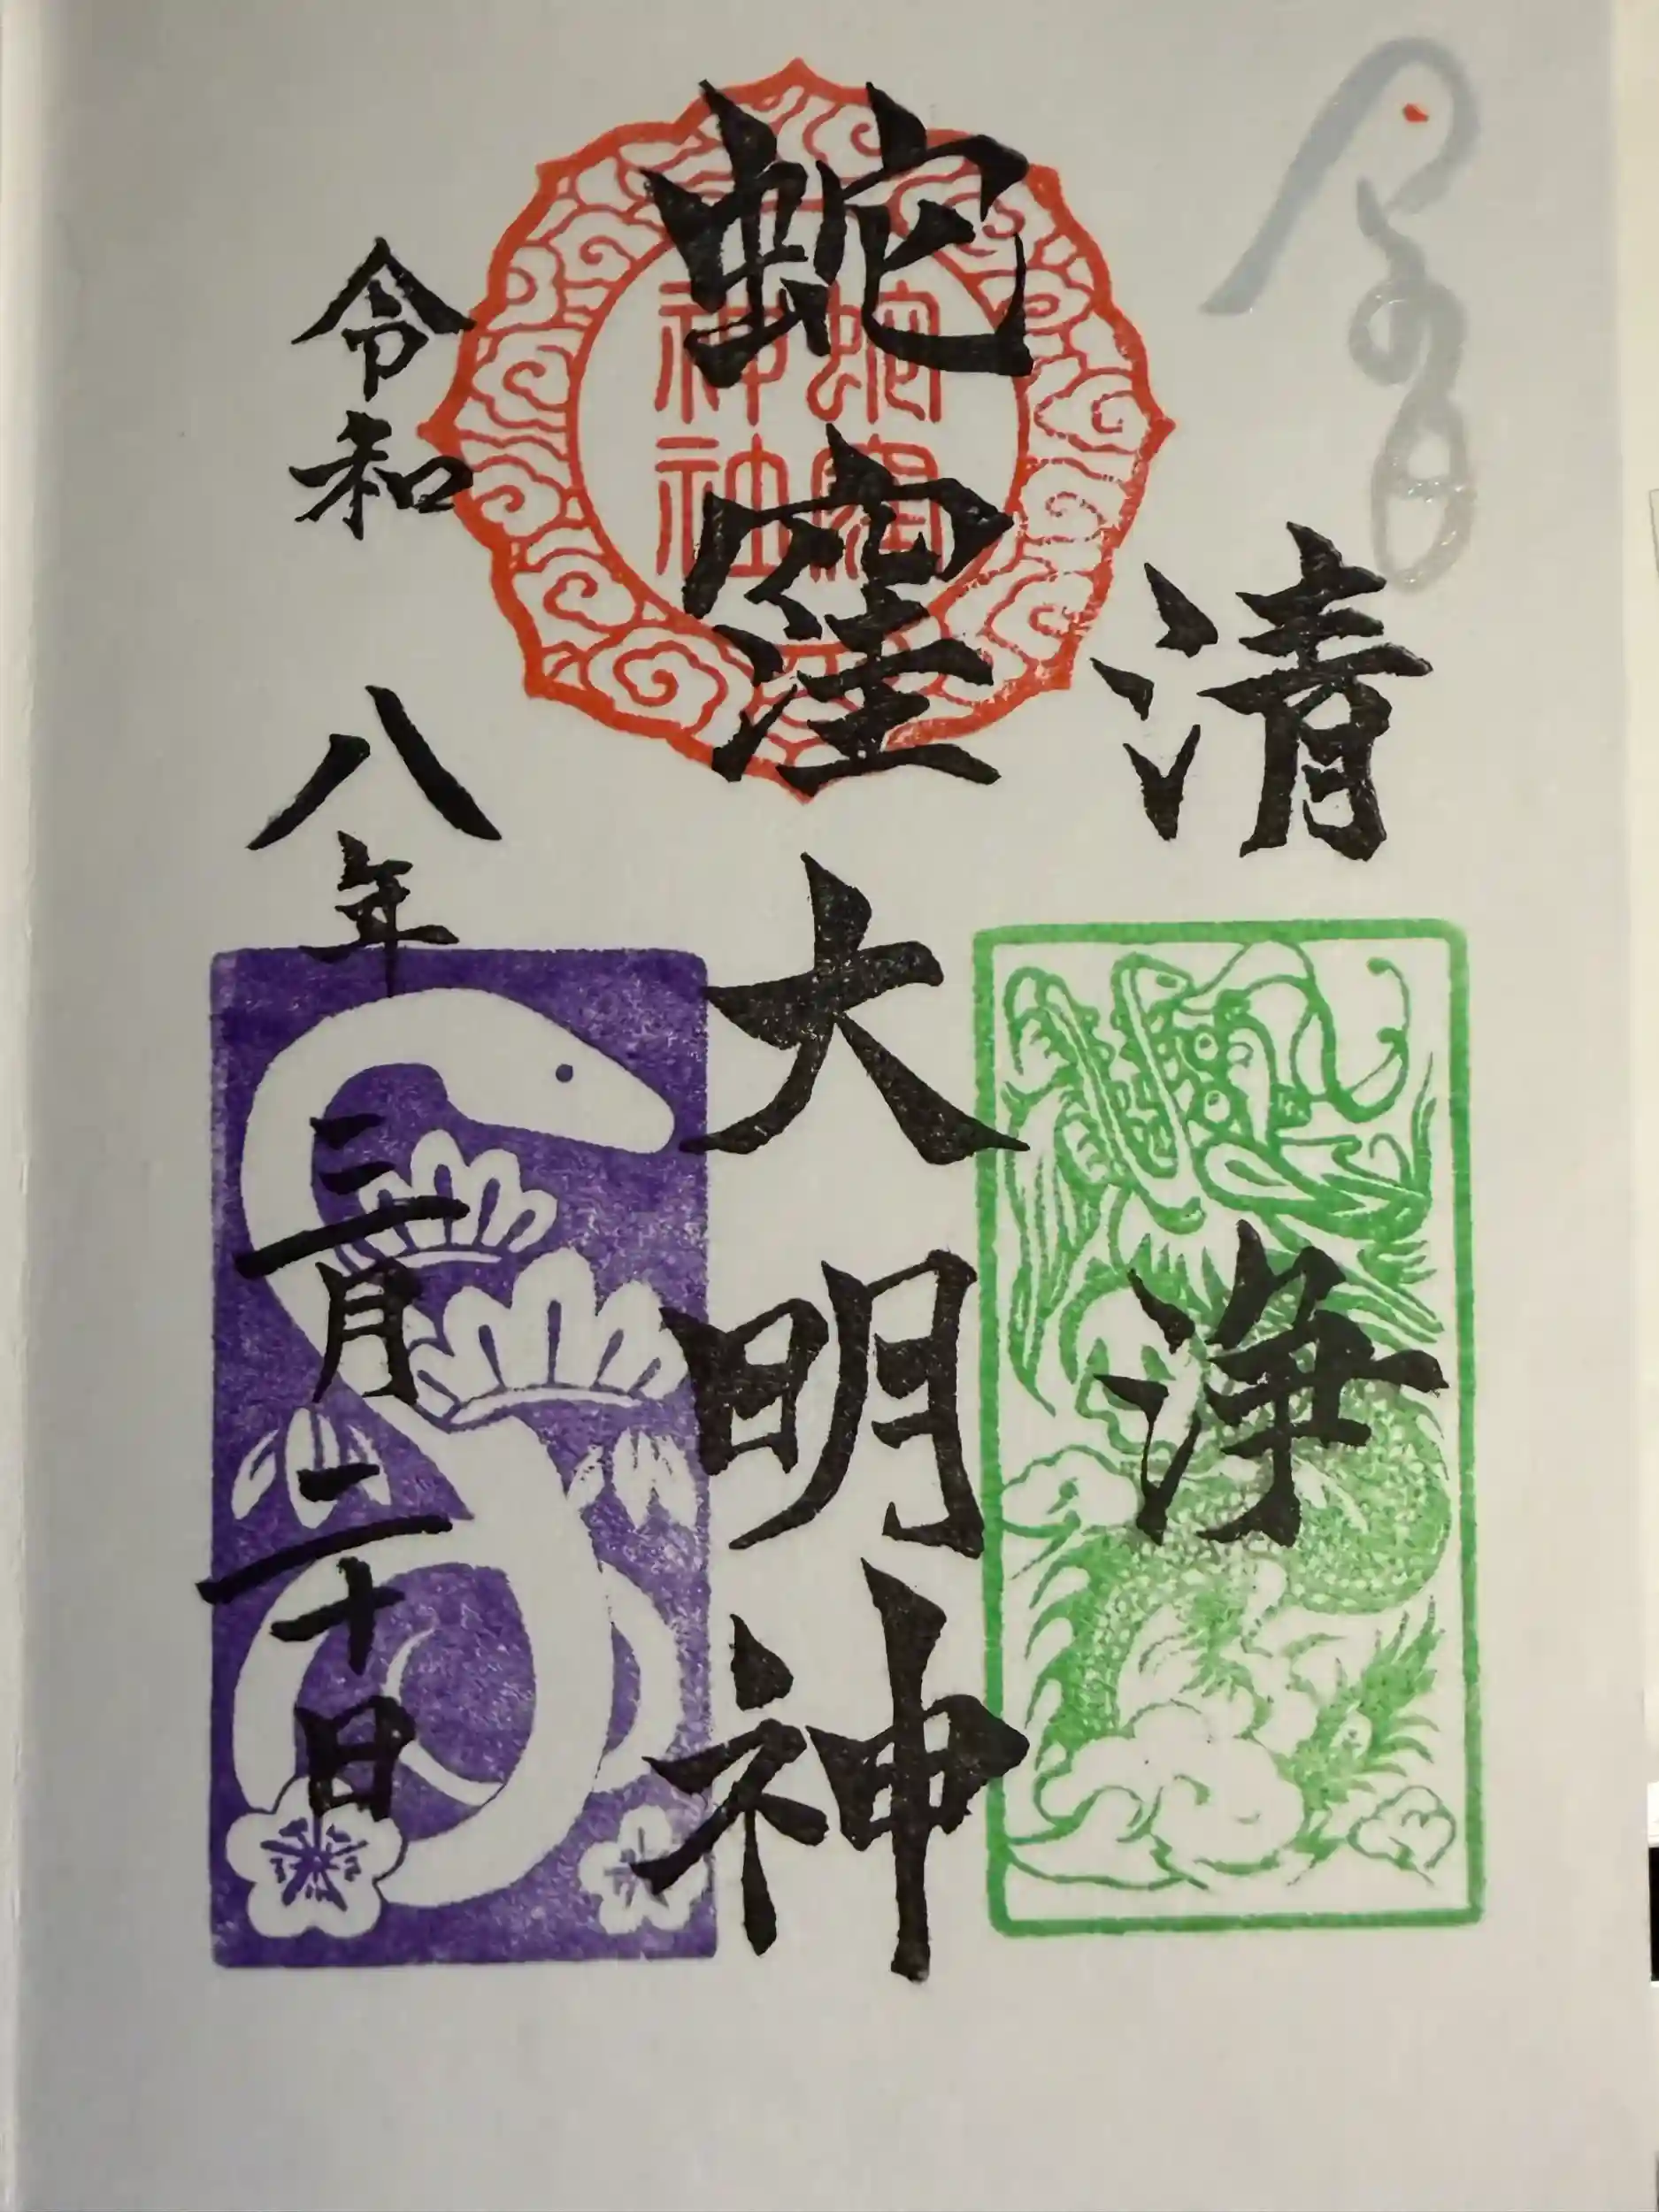 清浄
蛇窪大明神
蛇窪
神社
令和八年三月二十日